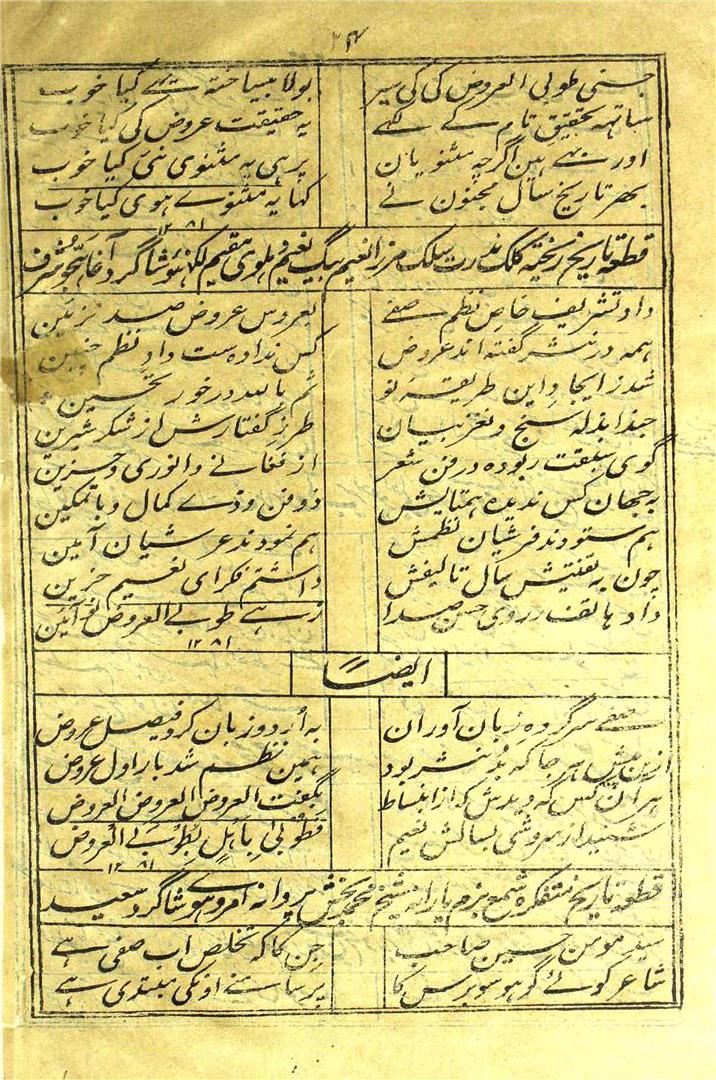 ۳۴
جسنی طوبی العروض کی کی سیر بولا بیساختہ یہے کیا خوب
ساتھہ تحقیق تام کے لکہے یہ حقیقت عروض کی کیا خوب
اور بہے ہین اگرچہ مثنویان پر ہی یہ مثنوی نئی کیا خوب
بہر تاریخ سال مجنون نے کہا یہ مثنوے ہوی کیا خوب
۱۲۸۱
قطعہ تاریخ ریختہ کلک ندرت سلک مرزا نعیم بیگ نعیم دہلوی مقیم لکہنؤ شاگرد آغا حجو شرف
داد تشریف خاص نظم صفے بعروس عروض صد تزئین
ہمہ در نثر گفتہ اند عروض کس ندادہ ست داد نظم چنین
شد ز ایجاد این طریقۂ نو باللہ در خور تحسین
حبذا بذلہ سنج و نغز بیان طرز گفتارش از شکر شیرین
گوی سبقت ربودہ در فن شعر از فغانے و انوری و حزین
بہ جہان کس ندیدہ ہمتایش ذو فن و ذے کمال و با تمکین
ہم ستودند فرشیان نظمش ہم نمودند عرشیان آمین
چون بہ تفتیش سال تالیفش داشتم فکر ای نعیم حزین
داد ہاتف ز روی حسن صدا زہے طوبے العروض آئین
۱۲۸۱
ایضاً
صفے سر گروہ زبان آوران بہ اُردو زبان کرد فیصل عروض
ازین پیش ہر جا کہ بُد نثر بود ہمین نظم شد بار اول عروض
ہر آن کس کہ دیدش کہ از انبساط بگفت العروض العروض العروض
شنید از سروشی بسالش نعیم فطوبیٰ بِاَہلٍ بطوبے العروض
۱۲۸۱
قطعہ تاریخ متفکرہ شمع بزم یارانہ شیخ محمد بخش پروانہ امروہے شاگرد سعید
سید مومن حسین صاحب جن کا کہ تخلص اب صفی ہے
شاعر کوئے گو ہو سو برس کا پر سامنے اونکی مبتدی ہے